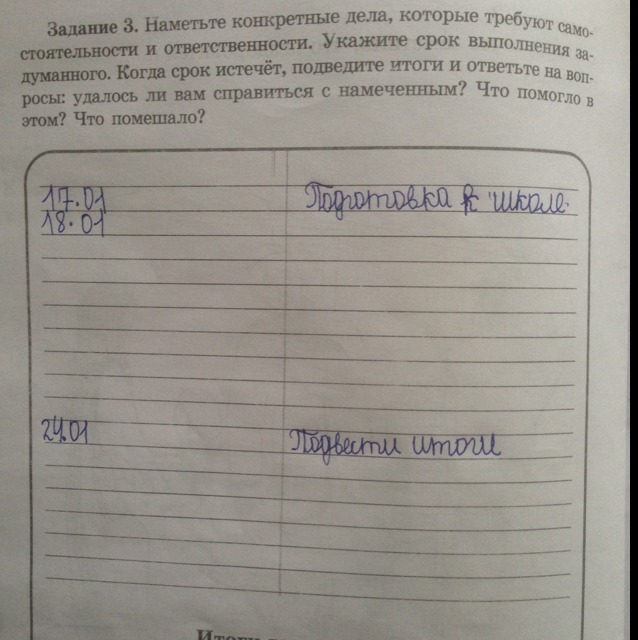 Задание 3. Наметьте конкретные дела, которые требуют само-
стоятельности и ответственности. Укажите срок выполнения за-
думанного. Когда срок истечёт, подведите итоги и ответьте на воп-
росы: удалось ли вам справиться с намеченным? Что помогло в
этом? Что помешало?
17.01 Подготовка к школе.
18.01
24.01 Подвести итоги
Итоги